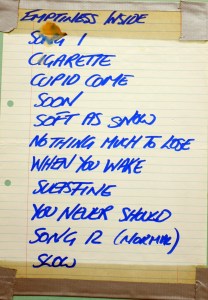 EMPTINESS INSIDE
SONG 1
CIGARETTE
CUPID COME
SOON
SOFT AS SNOW
NOTHING MUCH TO LOSE
WHEN YOU WAKE
SUEISFINE
YOU NEVER SHOULD
SONG 2 (NORMAL)
SLOW